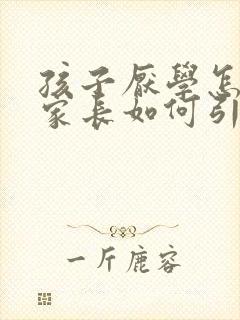 孩子厌学怎
家长如何引
一斤鹿容